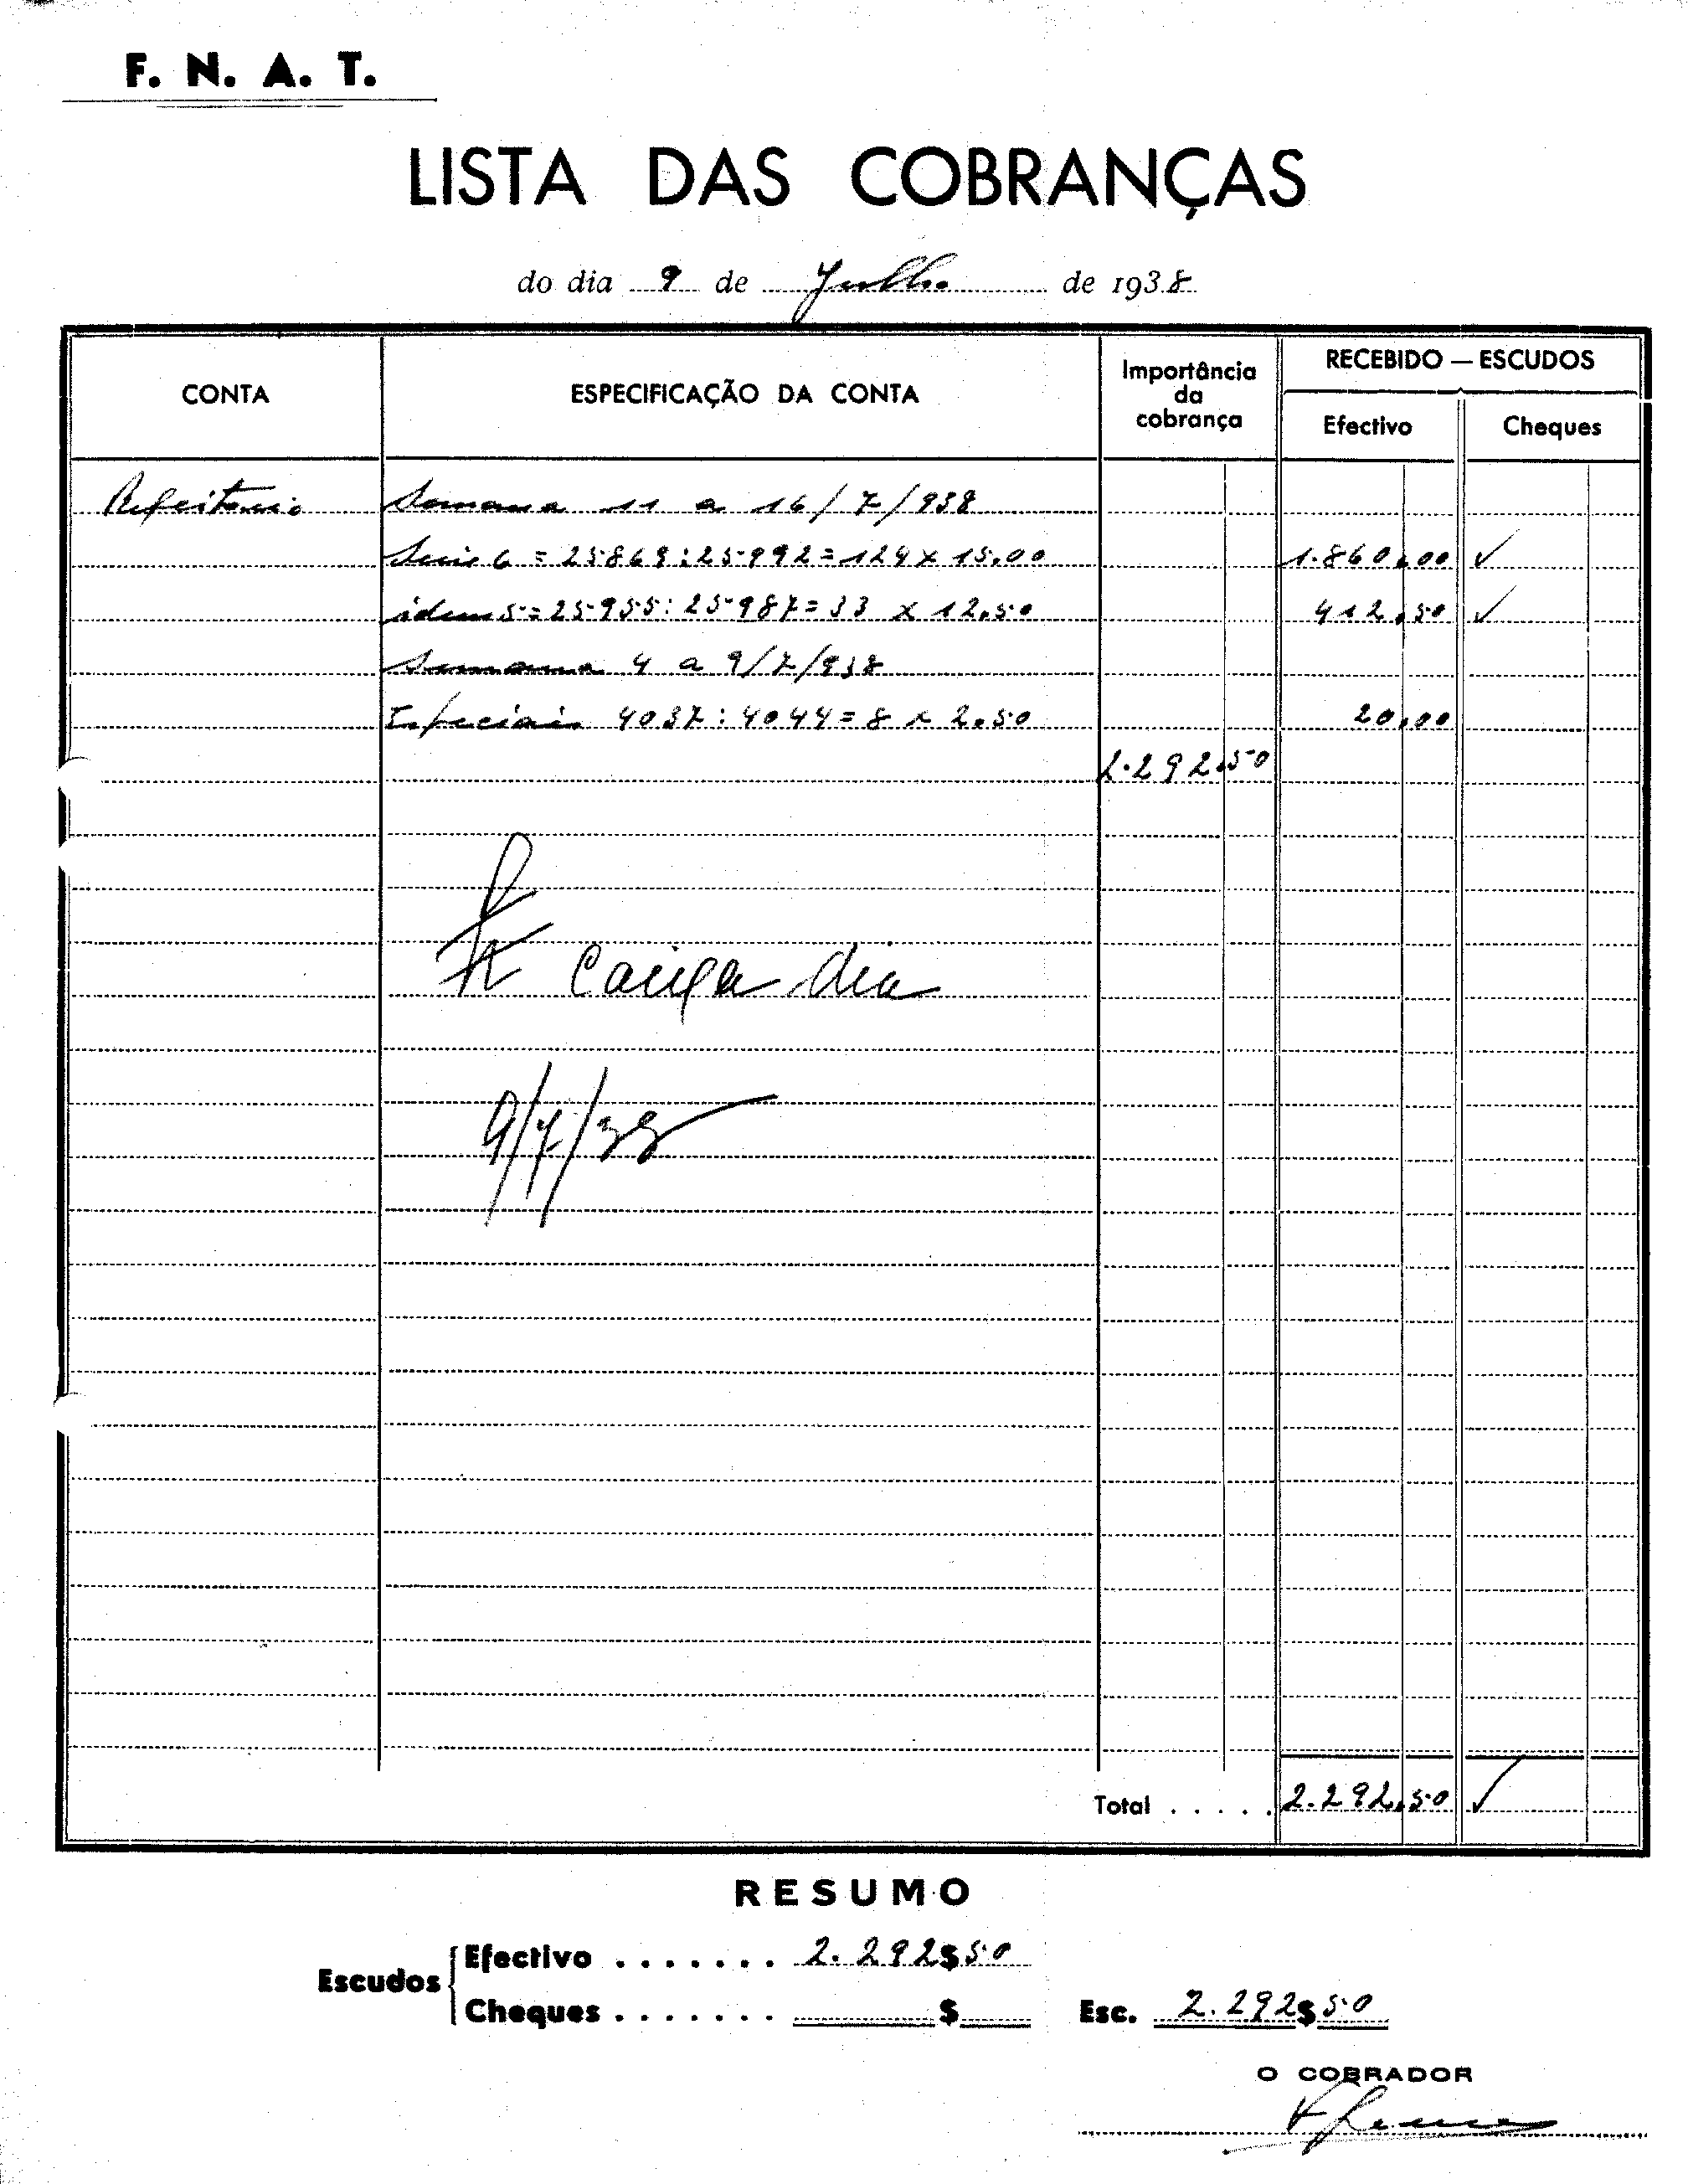 F. N. A. T.
LISTA DAS COBRANÇAS
do dia 9 de Julho de 1938
CONTA ESPECIFICAÇÃO DA CONTA Importância da cobrança RECEBIDO — ESCUDOS
Efectivo Cheques
Refeitorio Semana 11 a 16/7/938
Serie 6 = 25869 : 25992 = 124 x 15,00 1.860,00 ✓
idem 5 = 25955 : 25987 = 33 x 12,50 412,50 ✓
Semana 4 a 9/7/938
Especiais 4037 : 4044 = 8 x 2.50 20,00
2.292,50
dia
9/7/38
Total . . . . . 2.292,50 ✓
RESUMO
Escudos
Efectivo . . . . . . . 2.292$50
Cheques . . . . . . . $ Esc. 2.292$50
O COBRADOR